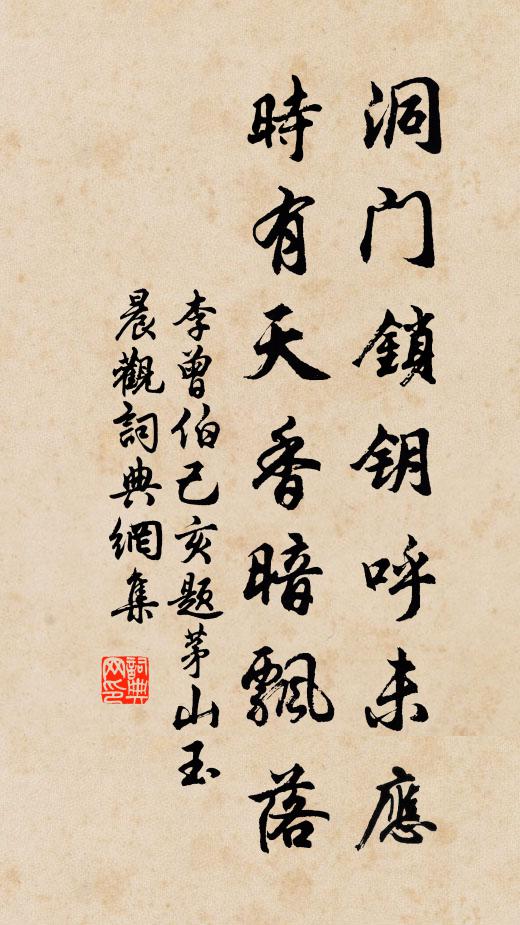 洞门鎖钥呼未應
時有天香暗飄落
李曾伯己亥题茅山玉
晨觀詞典網集
詞典网印